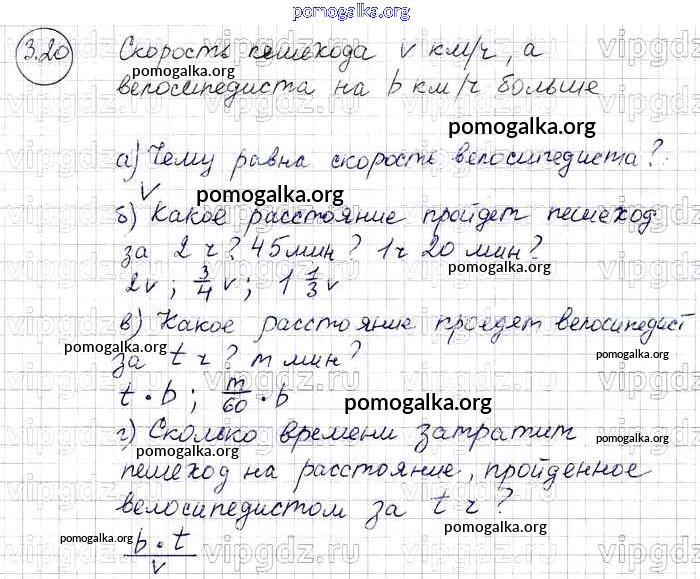 pomogalka.org
3.20 Скорость пешехода v км/ч, а
pomogalka.org
велосипедиста на b км/ч больше
pomogalka.org
а) Чему равна скорость велосипедиста?
v
pomogalka.org
б) Какое расстояние пройдет пешеход
за 2 ч? 45 мин? 1ч 20 мин?
pomogalka.org
2v ; 3/4 v ; 1 1/3 v
в) Какое расстояние проедет велосипедист
pomogalka.org
за t ч? m мин?
pomogalka.org
t · b ; m/60 · b
pomogalka.org
г) Сколько времени затратит
pomogalka.org
pomogalka.org
пешеход на расстояние, пройденное
велосипедистом за t ч?
pomogalka.org
pomogalka.org
b · t / v